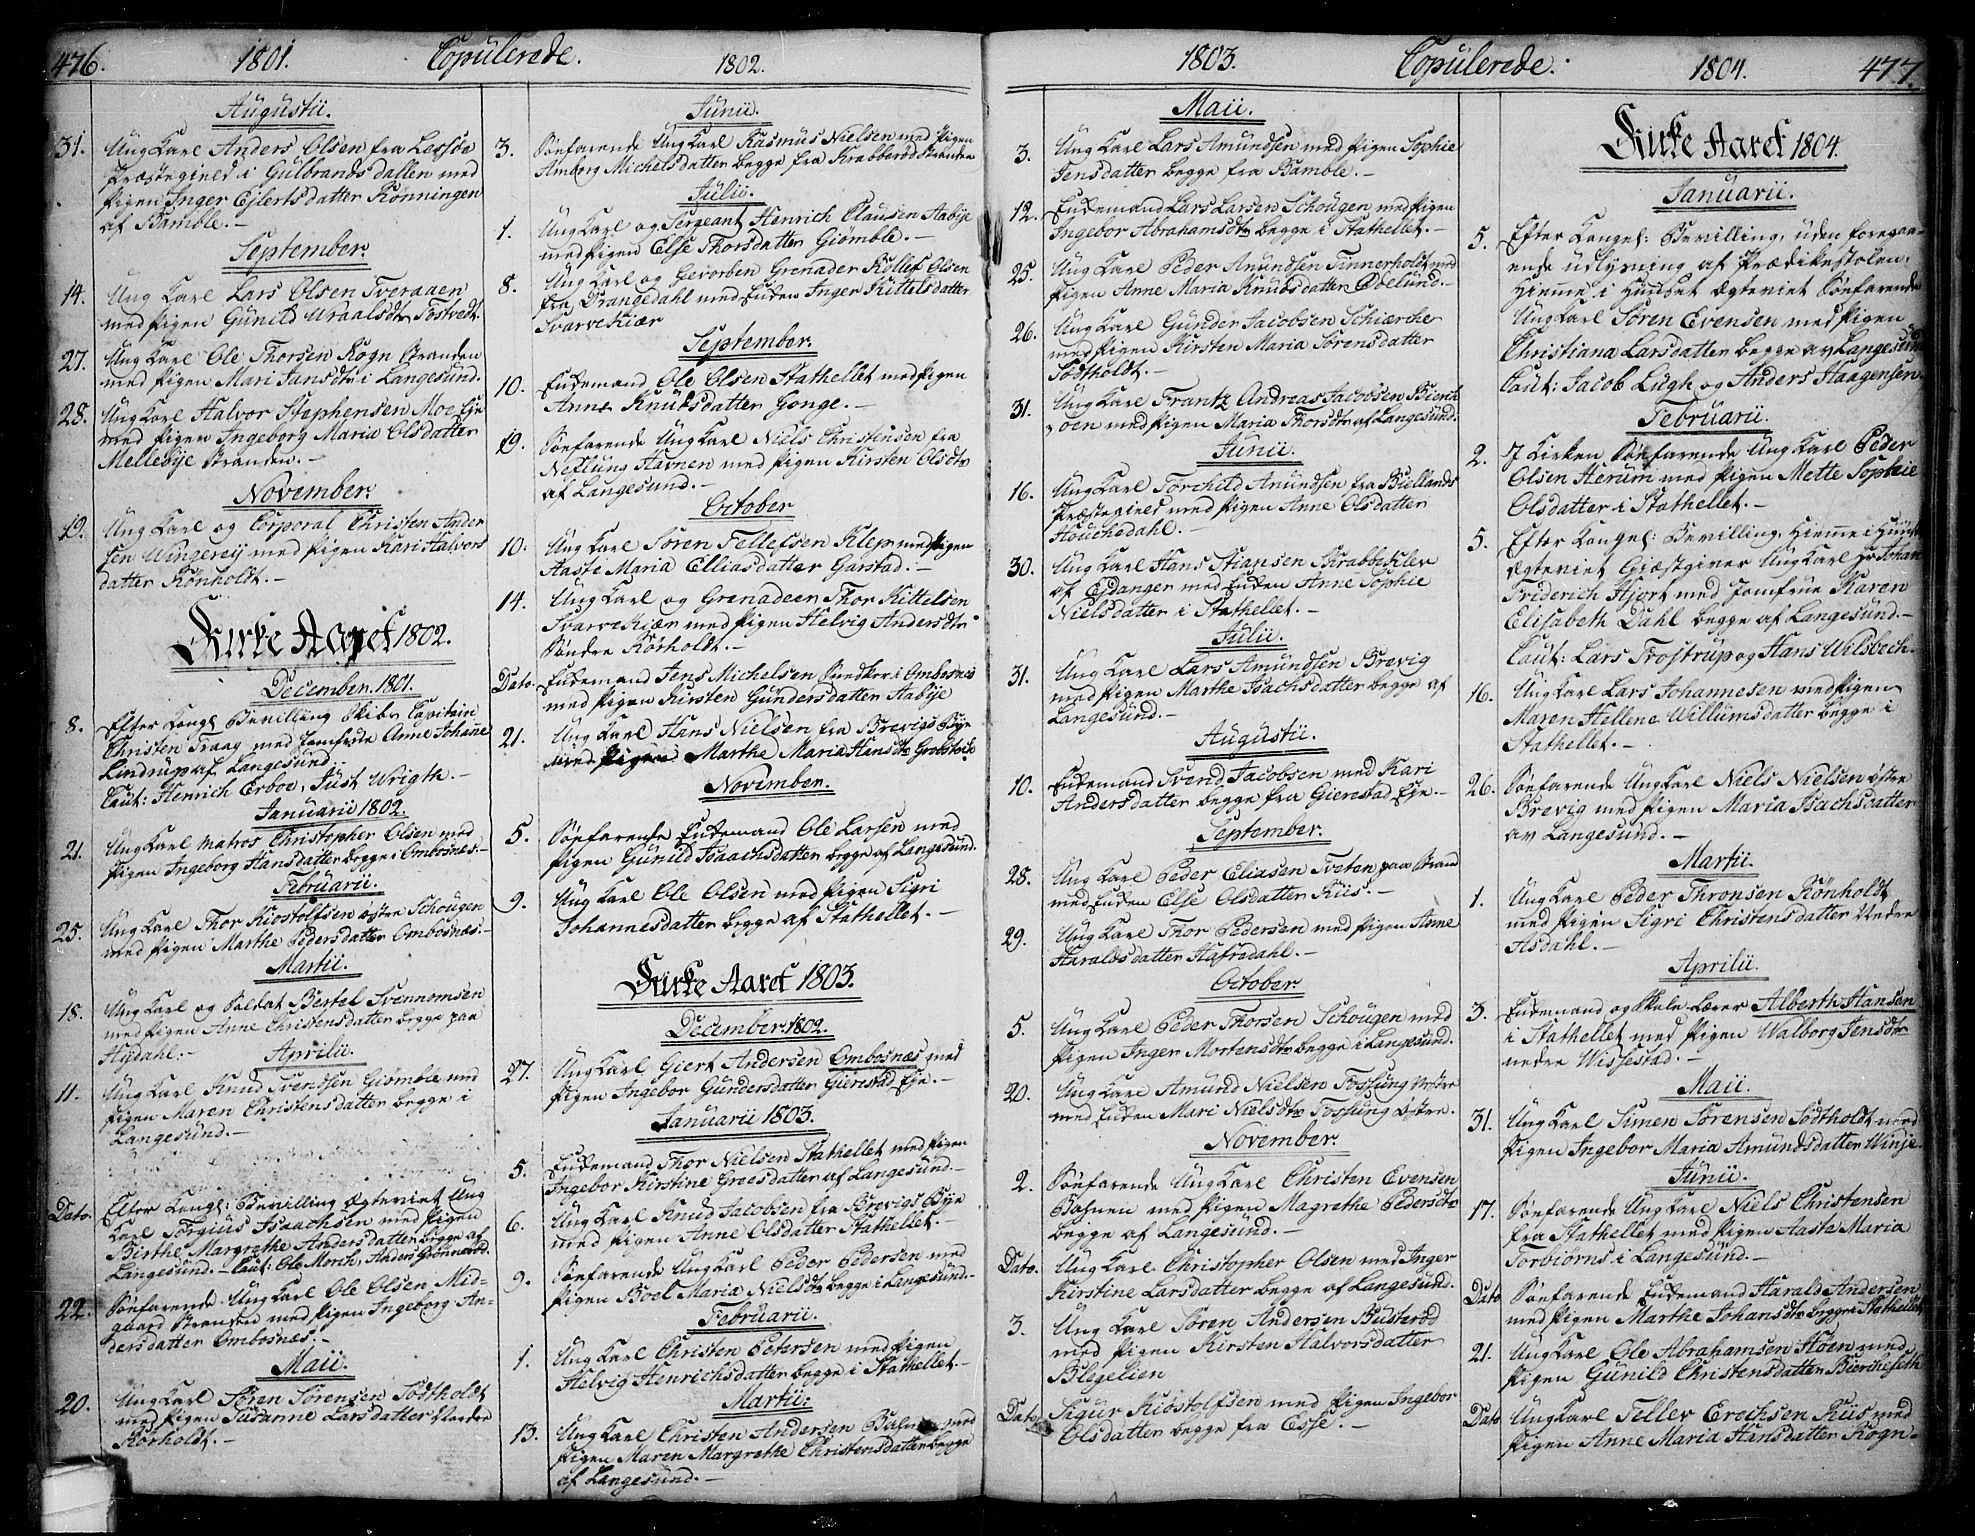 476. 1801. Copulerede. 1802.
Augustii.
31. Ung Karl Anders Olsen fra Lessøe
Præstegield i Gulbrands dallen med
Pigen Inger Ejlertsdatter Rønningen
af Bamble.-
September.
14. Ung Karl Lars Olsen Tveraaen
med Pigen Gunild Wraalsdtr Tostvedt.
27. Ung Karl Ole Thorsen Rogn Stranden
med Pigen Mari Jansdtr i Langesund.
28. Ung Karl Halvor Stephensen Moe Eje
med Pigen Ingeborg Maria Olsdatter
Mellebye Stranden.-
November.
19. Ung Karl og Corporal Christen Ander
sen Wingereij med Pigen Kari Halvors
datter Rønholdt.-
Kirke Aaret 1802.
December. 1801.
8. Efter Kongl Bevilling Skibs Capitain
Christen Traag med Jomfrue Anne Johanne
Lindrup af Langesund.
Caut: Henrich Erboe, Just Wrigth.-
Januarii 1802.
21. Ung Karl Matros Christopher Olsen med
Pigen Ingeborg Hansdatter begge i Ombosnæs.-
Februarii.
25. Ung Karl Thor Kiostolfsen østre Schougen
med Pigen Marthe Pedersdatter Ombosnæs.-
Martii.
18. Ung Karl og Soldat Bertel Svennomsen
med Pigen Anne Christensdatter begge paa
Hydahl.-
Aprilii.
11. Ung Karl Knud Svendsen Giømble med
Pigen Maren Christensdatter begge i
Langesund.-
Dato. Efter Kongl: Bevilling Ægteviet Ung
Karl Torgius Isaachsen med Pigen
Birthe Margrethe Andersdatter begge af
Langesund.- Caut: Ole Morch, Anders Grønnerød.
22. Søefarende Ung Karl Ole Olsen Mid-
gaard Stranden med Pigen Ingeborg An-
dersdatter Ombosnæs.-
Maii.
20. Ung Karl Søren Sørensen Sødtholdt
med Pigen Susanne Larsdatter Nædre
Rørholdt.-
Junii.
3. Søefarende Ung Karl Rasmus Nielsen med Pigen
Amborg Michelsdatter begge fra Krabberød Stranden
Julii.
1. Ung Karl og Sergeant Henrich Clausen Aabye
med Pigen Else Thorsdatter Giømble.-
8. Ung Karl og Gevorben Grenader Kollef Olsen
fra Drangedahl med Enken Inger Kittelsdatter
Svarvekiær
September.
10. Enkemand Ole Olsen Stathellet med Pigen
Anne Knudsdatter Gonge.-
19. Søefarende Ung Karl Niels Christensen fra
Neflung Havnen med Pigen Kirsten Olsdtr
af Langesund.-
October
10. Ung Karl Søren Tellefsen Klep med Pigen
Aaste Maria Elliasdatter Garstad.-
14. Ung Karl og Grenadeer Thor Kittelsen
Svarvekiær med Pigen Helvig Andersdtr
Søndre Rørholdt.-
Dato. Enkemand Jens Michelsen Snedker i Ombosnæs
med Pigen Kirsten Gundersdatter Aabye
21. Ung Karl Hans Nielsen fra Brevigs Bye
med Pigen Marthe Maria Hansdtr Grobstok
November.
5. Søefarende Enkemand Ole Larsen med
Pigen Gunild Isaachsdatter begge af Langesund.
9. Ung Karl Ole Olsen med Pigen Sigri
Johannesdatter begge af Stathellet.-
Kirke Aaret 1803.
December 1802.
27. Ung Karl Giert Andersen Ombosnæs med
Pigen Ingebor Gundersdatter Gierestad Eje.-
Januarii 1803.
5. Enkemand Thor Nielsen Stathellet med Pigen
Ingebor Kirstine Greesdatter af Langesund.-
6. Ung Karl Knud Jacobsen fra Brevigs Bye
med Pigen Anne Olsdatter Stathellet.-
9. Søefarende Ung Karl Peder Pedersen med
Pigen Boel Maria Nielsdtr begge i Langesund-
Februarii.
1. Ung Karl Christen Petersen med Pigen
Helvig Henrichsdatter begge i Stathellet.-
Martii.
13. Ung Karl Christen Andersen med
Pigen Maren Margrethe Christensdatter begge
af Langesund.-
1803. Copulerede. 1804. 477.
Maii.
3. Ung Karl Lars Amundsen med Pigen Sophie
Jensdatter begge fra Bamble.-
12. Enkemand Lars Larsen Schougen med Pigen
Ingebor Abrahamsdtr begge i Stathellet.-
25. Ung Karl Peder Amundsen Tinnerholdt med
Pigen Anne Maria Knudsdatter Edelund.-
26. Ung Karl Gunder Jacobsen Schiærche
med Pigen Kirsten Maria Sørensdatter
Sødtholdt.-
31. Ung Karl Frantz Andreas Jacobsen Bierch
øen med Pigen Maria Thorsdtr af Langesund.
Junii.
16. Ung Karl Torchild Anundsen fra Biellands
Præstegield med Pigen Anne Olsdatter
Houchedahl.-
30. Ung Karl Hans Stiansen Krabbekler
af Ejdanger med Enken Anne Sophie
Nielsdatter i Stathellet.-
Julii.
31. Ung Karl Lars Amundsen Brevig
med Pigen Marthe Isachsdatter begge af
Langesund.-
Augustii.
10. Enkemand Svend Jacobsen med Kari
Andersdatter begge fra Gierestad Eje.-
September.
28. Ung Karl Peder Eliasen Tveten paa Strand
med Enken Else Olsdatter Riis.-
29. Ung Karl Thor Pedersen med Pigen Anne
Haraldsdatter Hafredahl.-
October
5. Ung Karl Peder Thorsen Schougen med
Pigen Inger Mortensdtr begge i Langesund.
20. Ung Karl Amund Nielsen Fossung Vestre
med Enken Mari Nielsdtr Fossung østre.
November.
2. Søefarende Ung Karl Christen Evensen
Basnen med Pigen Magrethe Pedersdtr
begge af Langesund.-
Dato. Ung Karl Christopher Olsen med Inger
Kirstine Larsdatter begge af Langesund.
3. Ung Karl Søren Andersen Busterød
med Pigen Kirsten Halvorsdatter
Blegelien
Dato Sigur Kiostolfsen med Pigen Ingebor
Olsdatter begge fra Esse.-
Kirke Aaret 1804.
Januarii.
5. Efter Kongel: Bevilling, uden foregaa-
ende udlysning af Prædikestolen,
Hjemme i Huuset Ægteviet Søefarende
Ung Karl Søren Evensen med Pigen
Christiana Larsdatter begge av Langesund
Caut: Jacob Lugh og Anders Haagensen.
Februarii.
2. I Kirken Søefarende Ung Karl Peder
Olsen Herum med Pigen Mette Sophie
Olsdatter i Stathellet.-
5. Efter Kongel: Bevilling, Hiemme i Huuset
Ægteviet Giæstgiver Ung Karl Hr Johan
Friderich Hjort med Jomfrue Karen
Elisabeth Dahl begge af Langesund.-
Caut: Lars Trostrup og Hans Wilsbech.
16. Ung Karl Lars Johannesen med Pigen
Maren Hellene Willumsdatter begge i
Stathellet.-
26. Søefarende Ung Karl Niels Nielsen østre
Brevig med Pigen Maria Isachsdatter
av Langesund.-
Martii.
1. Ung Karl Peder Thronsen Rønholdt
med Pigen Sigri Christensdatter Nedre
Asdahl.-
Aprilii.
3. Enkemand og Skole Lærer Alberth Hansen
i Stathellet med Pigen Walborg Jensdtr
nedre Wissestad.-
Maii.
31. Ung Karl Simen Sørensen Sødtholdt med
Pigen Ingebor Maria Amundsdatter Winje.
Junii.
17. Søefarende Ung Karl Niels Christensen
fra Stathellet med Pigen Aaste Maria
Torbiørns i Langesund.-
Dato Søefarende Enkemand Harald Andersen
med Pigen Marthe Johansdtr begge i Stathellet
21. Ung Karl Ole Abrahamsen Høen med
Pigen Gunild Christensdatter Biercheseth
Dato Ung Karl Tellev Erechsen Riis med
Pigen Anne Maria Hansdatter Rogn-